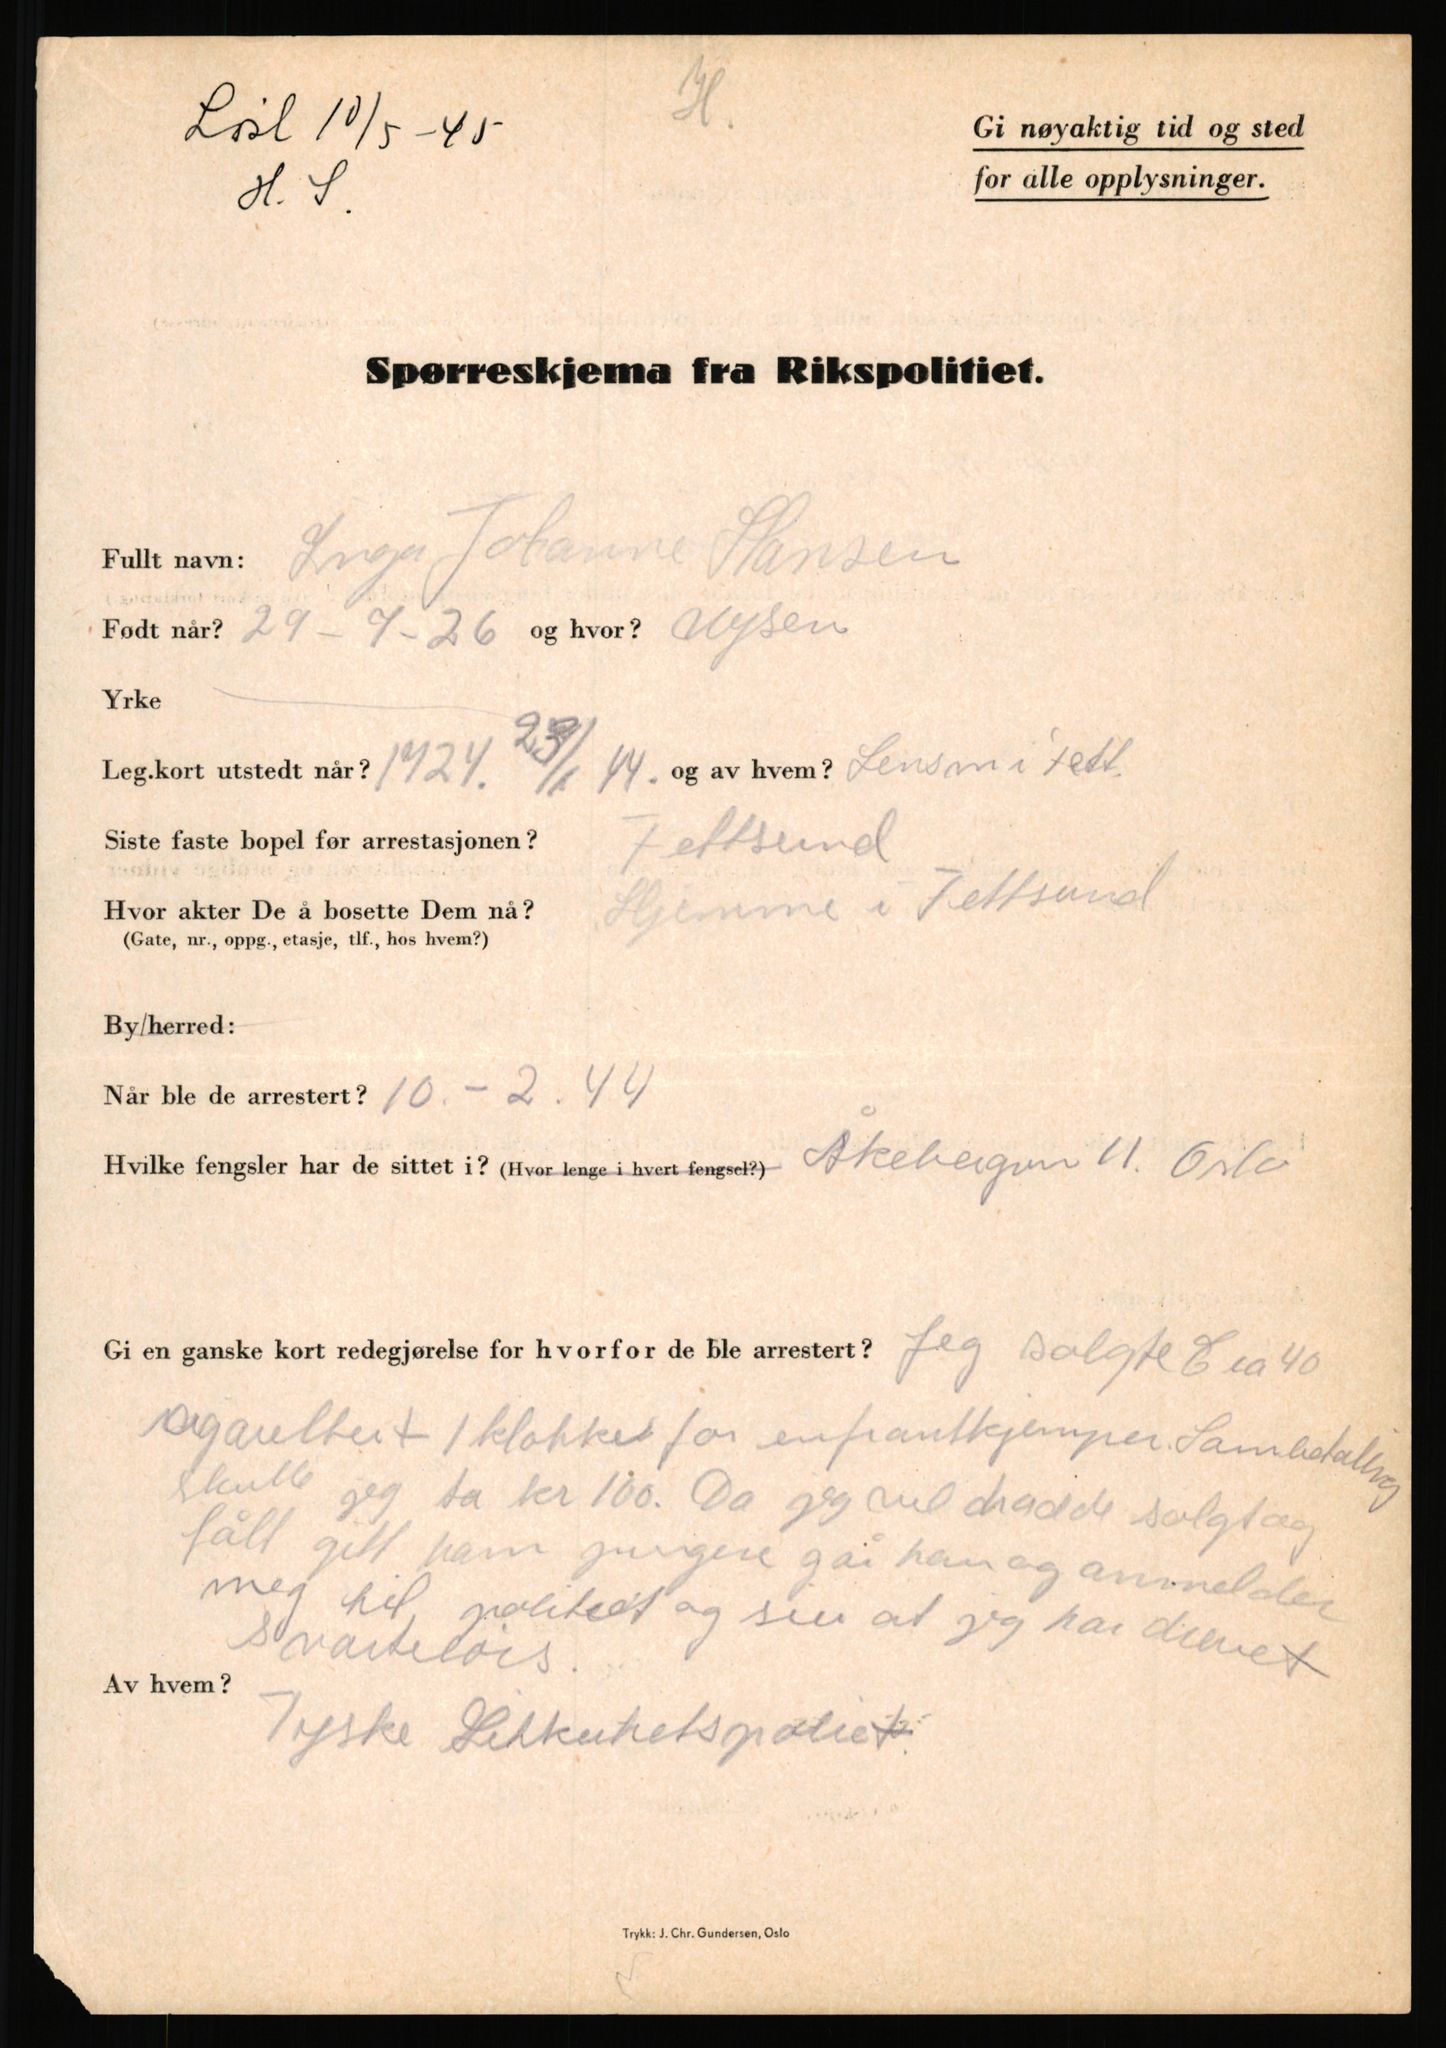 H.
Løsl 10/5-45
H. S.
Gi nøyaktig tid og sted
for alle opplysninger.
Spørreskjema fra Rikspolitiet.
Fullt navn: Inga Johanne Hansen
Født når? 29-7-26 og hvor? Nysen
Yrke
Leg.kort utstedt når? 1924. 23/1 44. og av hvem? Lensm i Fett.
Siste faste bopel før arrestasjonen? Fettsund
Hvor akter De å bosette Dem nå? Hjemme i Fettsund
(Gate, nr., oppg., etasje, tlf., hos hvem?)
By/herred:
Når ble de arrestert? 10.-2.44
Hvilke fengsler har de sittet i? (Hvor lenge i hvert fengsel?) Åkebergvn 11. Oslo
Gi en ganske kort redegjørelse for hvorfor de ble arrestert? Jeg solgte ca 40
1 klokke for en frontkjemper. Som betaling
skulle jeg ta kr 100. Da jeg vel hadde solgt og
fått gitt ham pengene går han og anmelder
meg til politiet og sier at jeg har drevet
svartebørs.
Av hvem? Tyske Sikkerhetspoliet
Trykk: J. Chr. Gundersen, Oslo